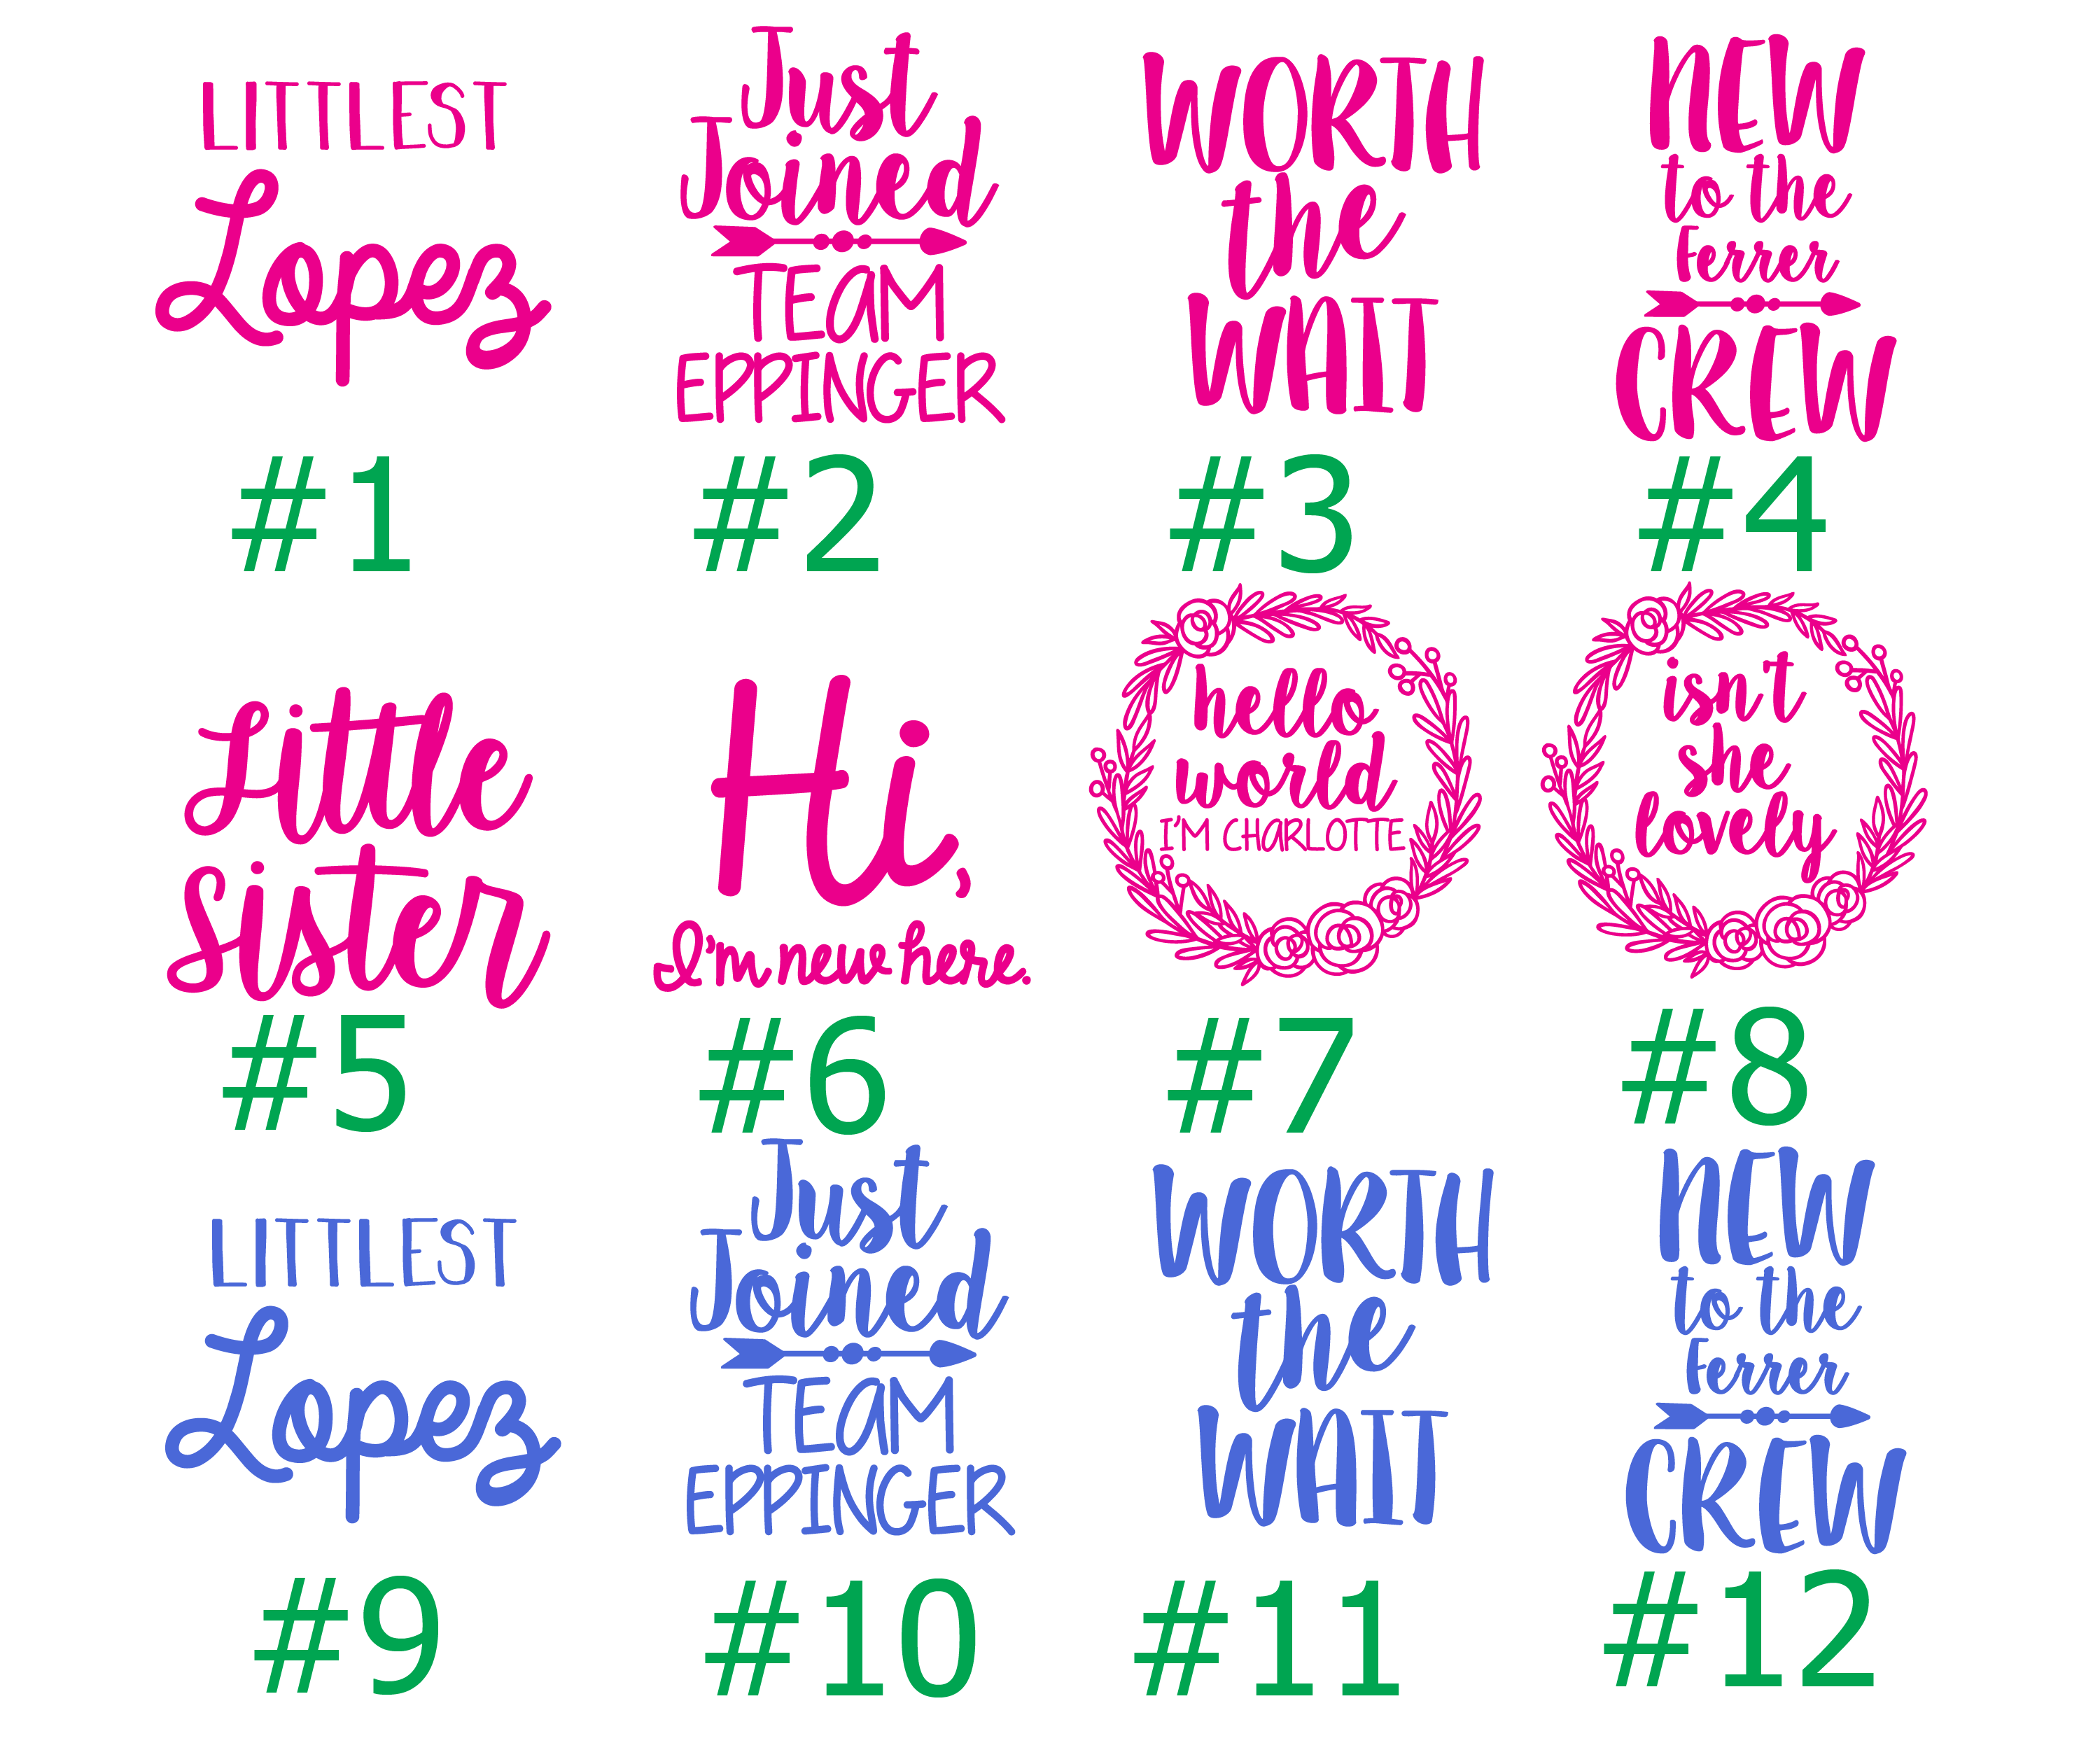 LITTLEST
Lopez
#1
Just
Joined
TEAM
EPPINGER
#2
WORTH
the
WAIT
#3
NEW
to the
Ferrer
CREW
#4
Little
Sister
#5
Hi,
I'm new here.
#6
hello
world
I'M CHARLOTTE
#7
isn't
she
lovely
#8
LITTLEST
Lopez
#9
Just
Joined
TEAM
EPPINGER
#10
WORTH
the
WAIT
#11
NEW
to the
Ferrer
CREW
#12